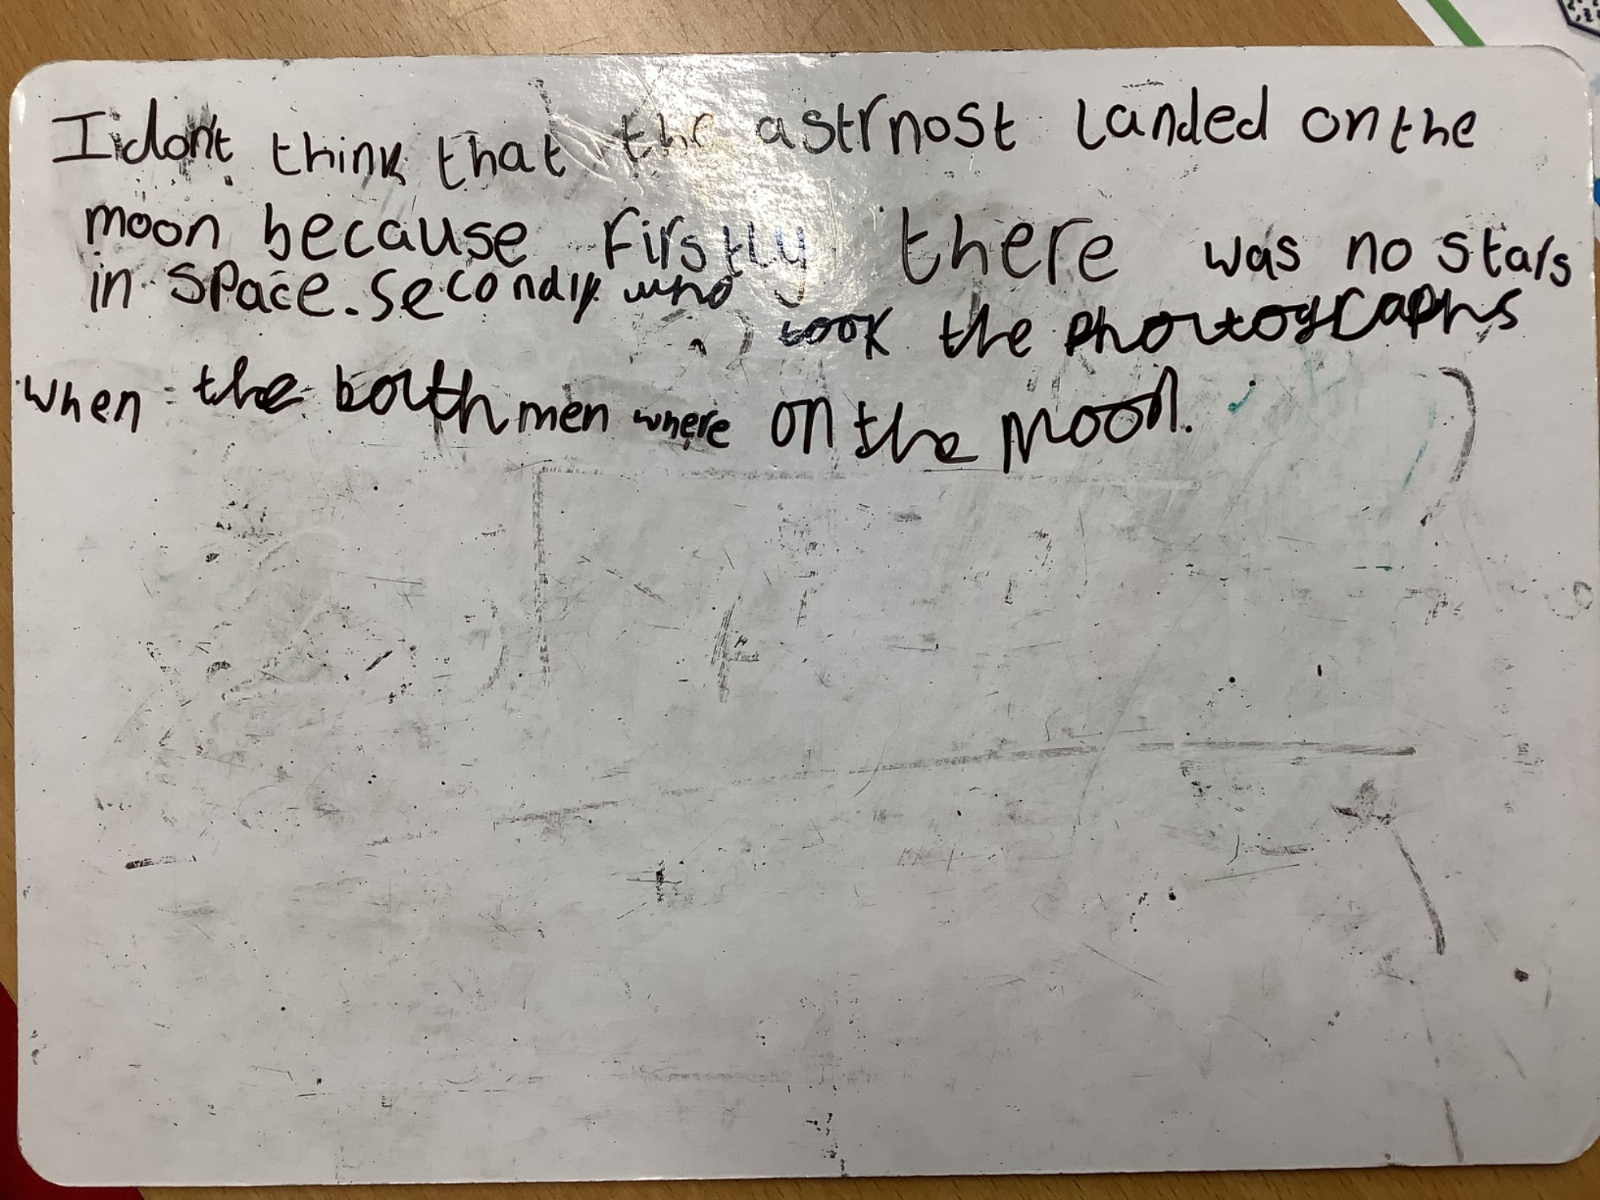 I don't think that the astrnost landed on the
moon because firstly there was no stars
in space. secondly who took the photographs
when the bouth men where on the moon.